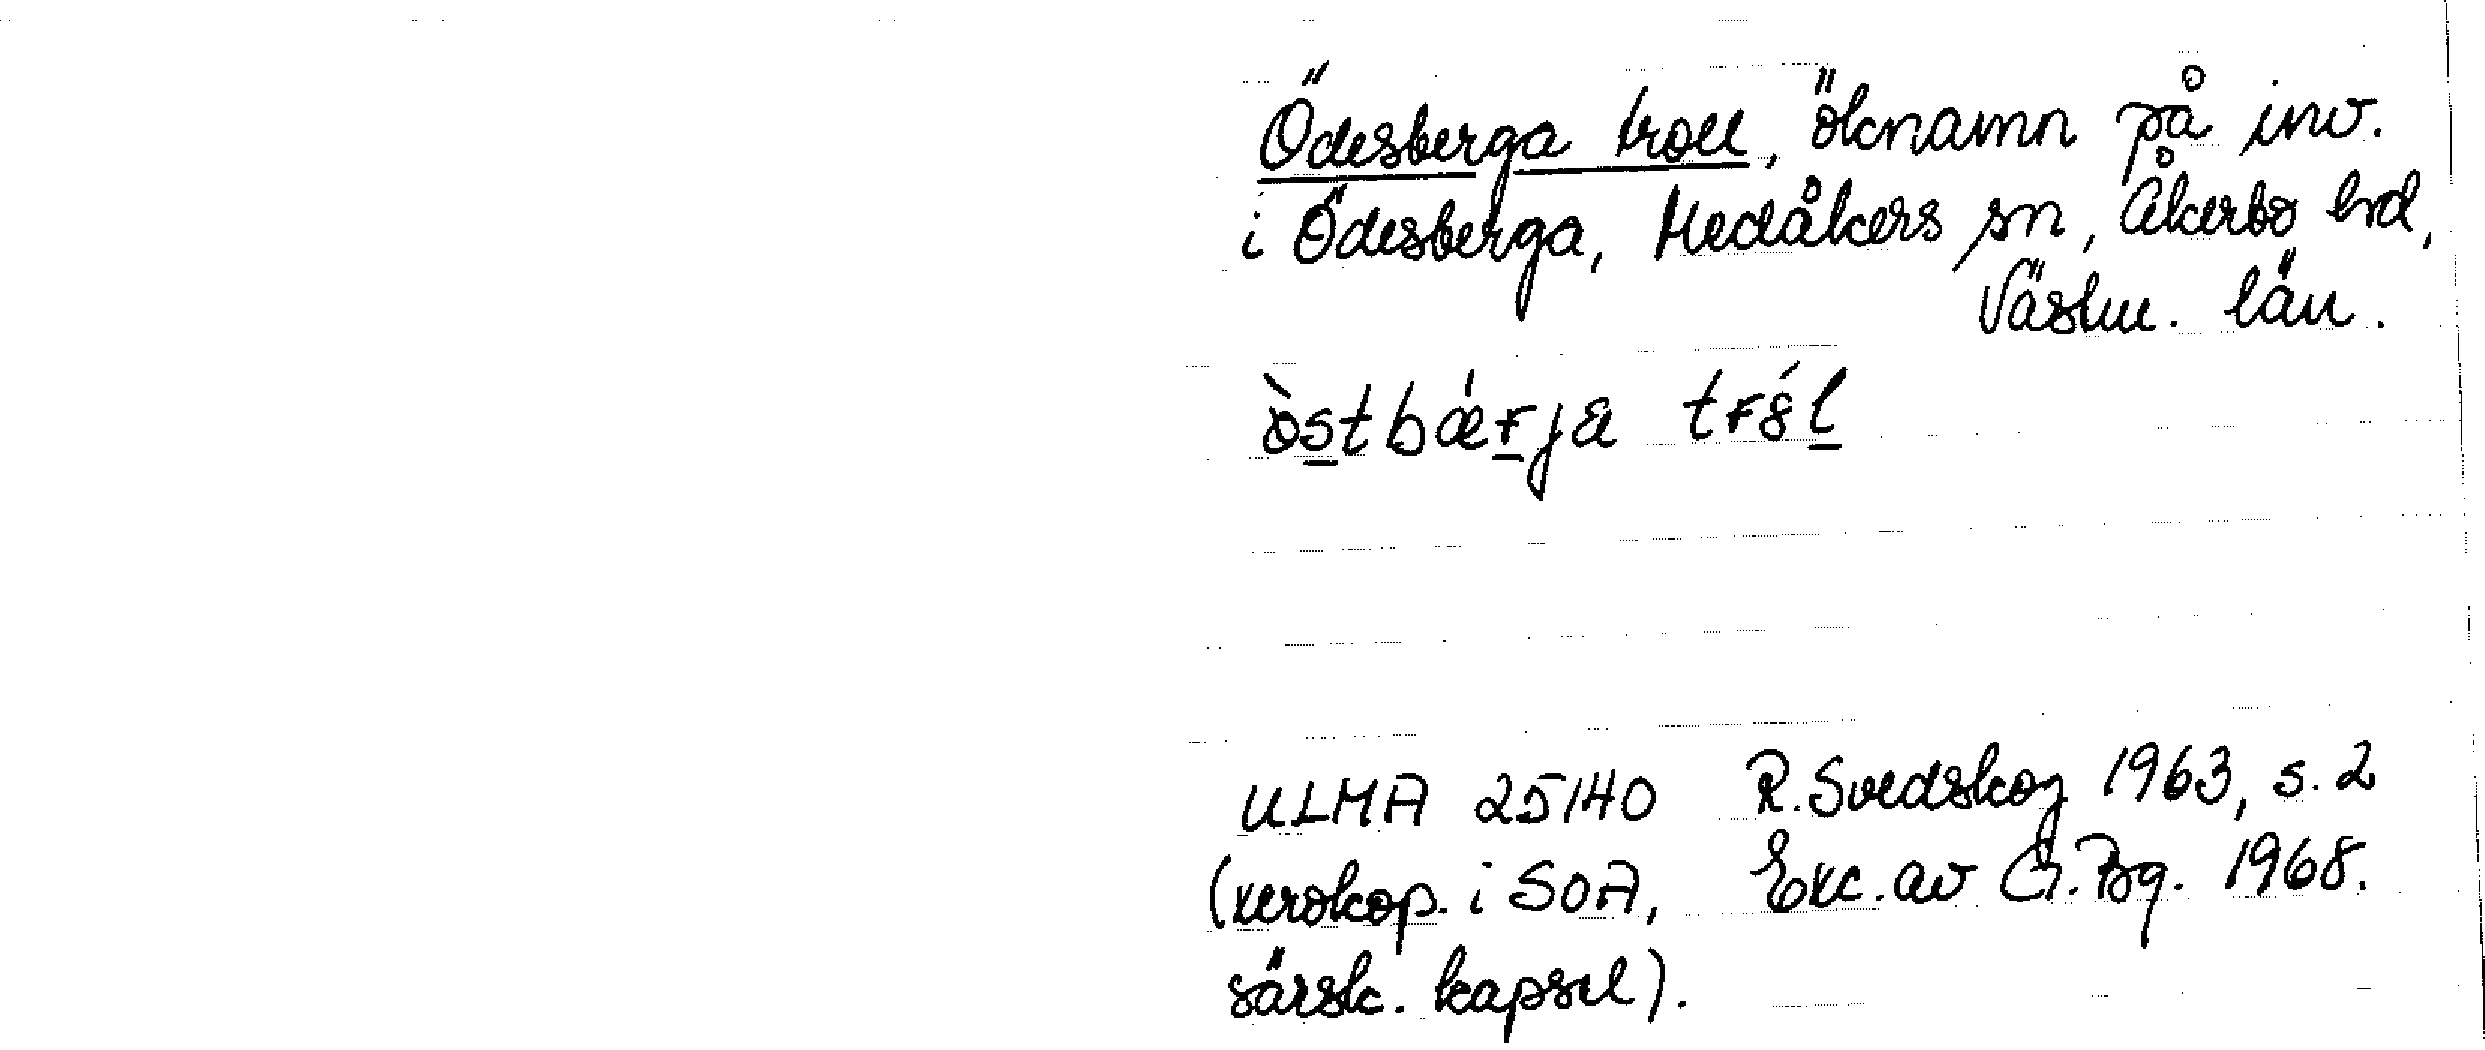 Ödesberga troll, öknamn på inv.
i Ödesberga, Medåkers sn, Åkerbo hd,
Västm. län.
ULMA 25140 R. Svedskog 1963, s. 2
(xerokop. i SOA, Exc. av G. Bg. 1968.
särsk. kapsel).